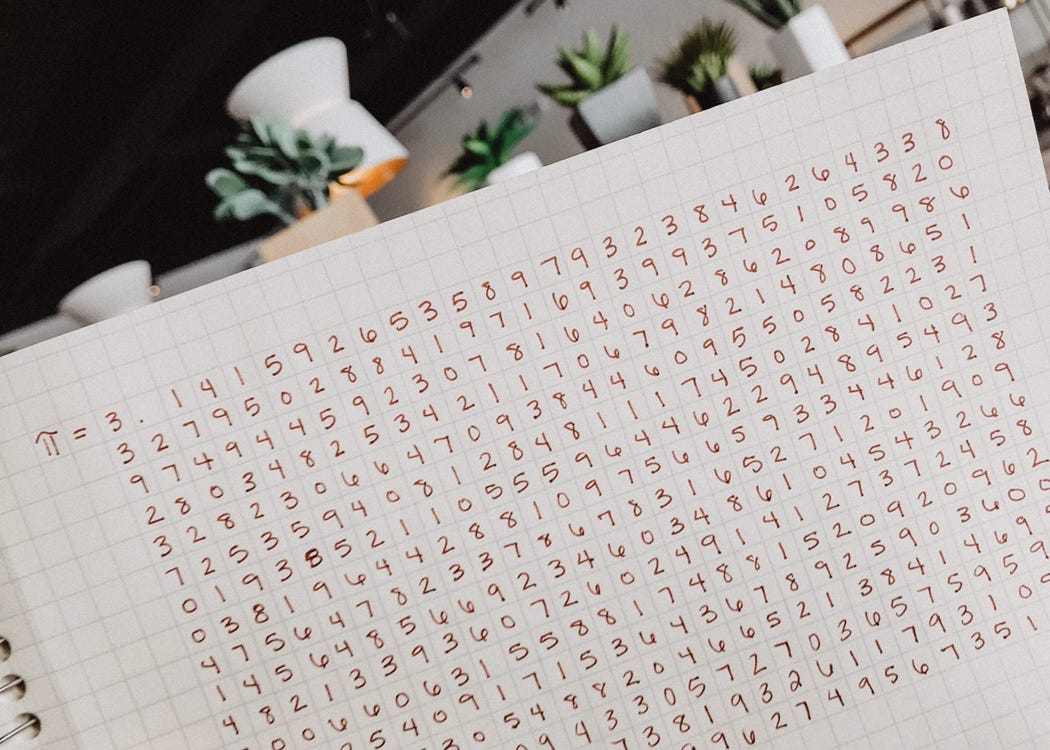 π = 3 . 1 4 1 5 9 2 6 5 3 5 8 9 7 9 3 2 3 8 4 6 2 6 4 3 3 8
3 2 7 9 5 0 2 8 8 4 1 9 7 1 6 9 3 9 9 3 7 5 1 0 5 8 2 0
9 7 4 9 4 4 5 9 2 3 0 7 8 1 6 4 0 6 2 8 6 2 0 8 9 9 8 6
2 8 0 3 4 8 2 5 3 4 2 1 1 7 0 6 7 9 8 2 1 4 8 0 8 6 5 1
3 2 8 2 3 0 6 6 4 7 0 9 3 8 4 4 6 0 9 5 5 0 5 8 2 2 3 1
7 2 5 3 5 9 4 0 8 1 2 8 4 8 1 1 1 7 4 5 0 2 8 4 1 0 2 7
0 1 9 3 8 5 2 1 1 0 5 5 5 9 6 4 4 6 2 2 9 4 8 9 5 4 9 3
0 3 8 1 9 6 4 4 2 8 8 1 0 9 7 5 6 6 5 9 3 3 4 4 6 1 2 8
4 7 5 6 4 7 8 2 3 3 7 8 6 7 8 3 1 6 5 2 7 1 2 0 1 9 0 9
1 4 5 6 4 8 5 6 6 9 2 3 4 6 0 3 4 8 6 1 0 4 5 4 3 2 6 6
4 8 2 1 3 3 9 3 6 0 7 2 6 0 2 4 9 1 4 1 2 7 3 7 2 4 5 8
0 0 6 6 0 6 3 1 5 5 8 8 1 7 4 8 8 1 5 2 0 9 2 0 9 6 2
5 4 0 9 1 7 1 5 3 6 4 3 6 7 8 9 2 5 9 0 3 6 0 0
3 0 5 4 8 8 2 0 4 6 6 5 2 1 3 8 4 1 4 6 9 5
9 4 3 3 0 5 7 2 7 0 3 6 5 7 5 9 5 9
7 3 8 1 9 3 2 6 1 1 7 9 3 1 0 5
9 6 2 7 4 9 5 6 7 3 5 1